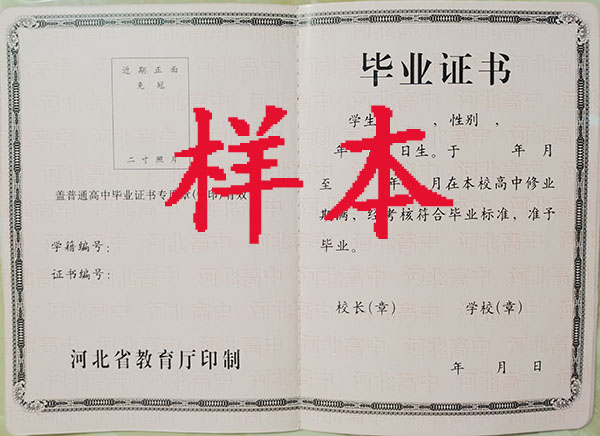 近期正面
免冠
二寸照片
盖普通高中毕业证书专用章(印)有效
学籍编号：
证书编号：
河北省教育厅印制
毕业证书
学生 ，性别 ，
年 日生。于 年 月
至 年 月在本校高中修业
期满，经考核符合毕业标准，准予
毕业。
校长(章) 学校(章)
年 月 日
样本